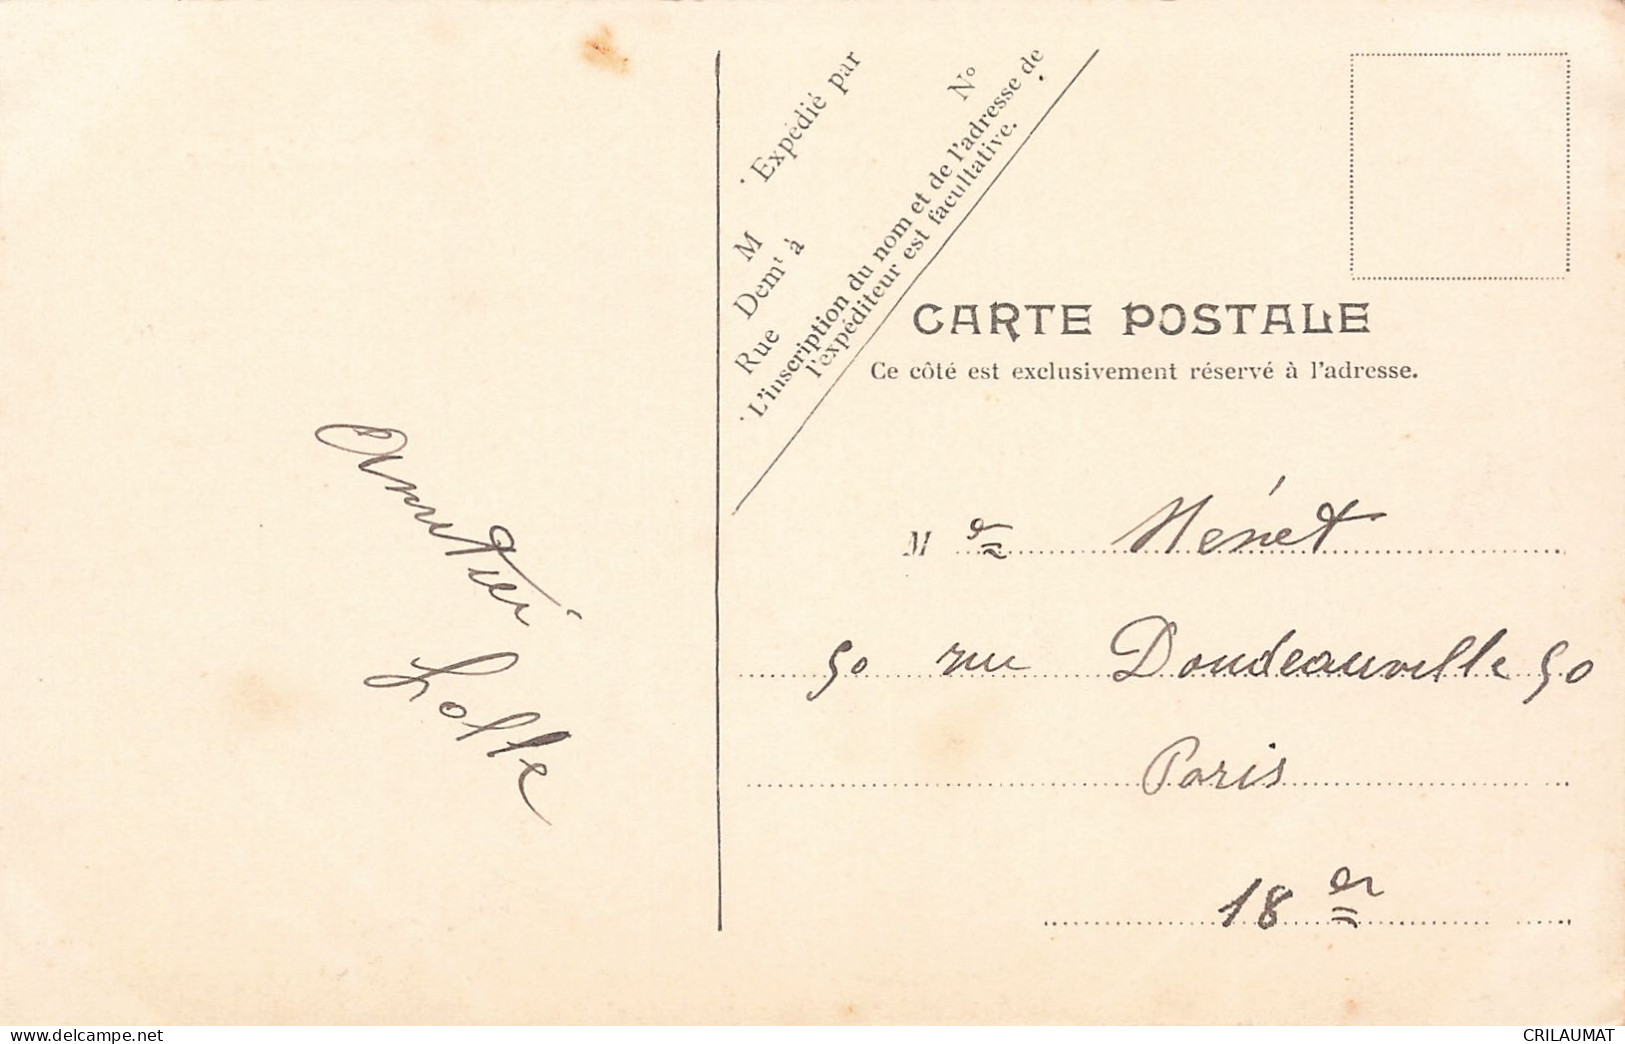 Expédié par
M
Demt à
Rue
N°
L'inscription du nom et de l'adresse de
l'expéditeur est facultative.
CARTE POSTALE
Ce côté est exclusivement réservé à l'adresse.
Amitié
Lolle
M er Hénet
50 rue Doudeauville 50
Paris
18 er
www.delcampe.net
CRILAUMAT